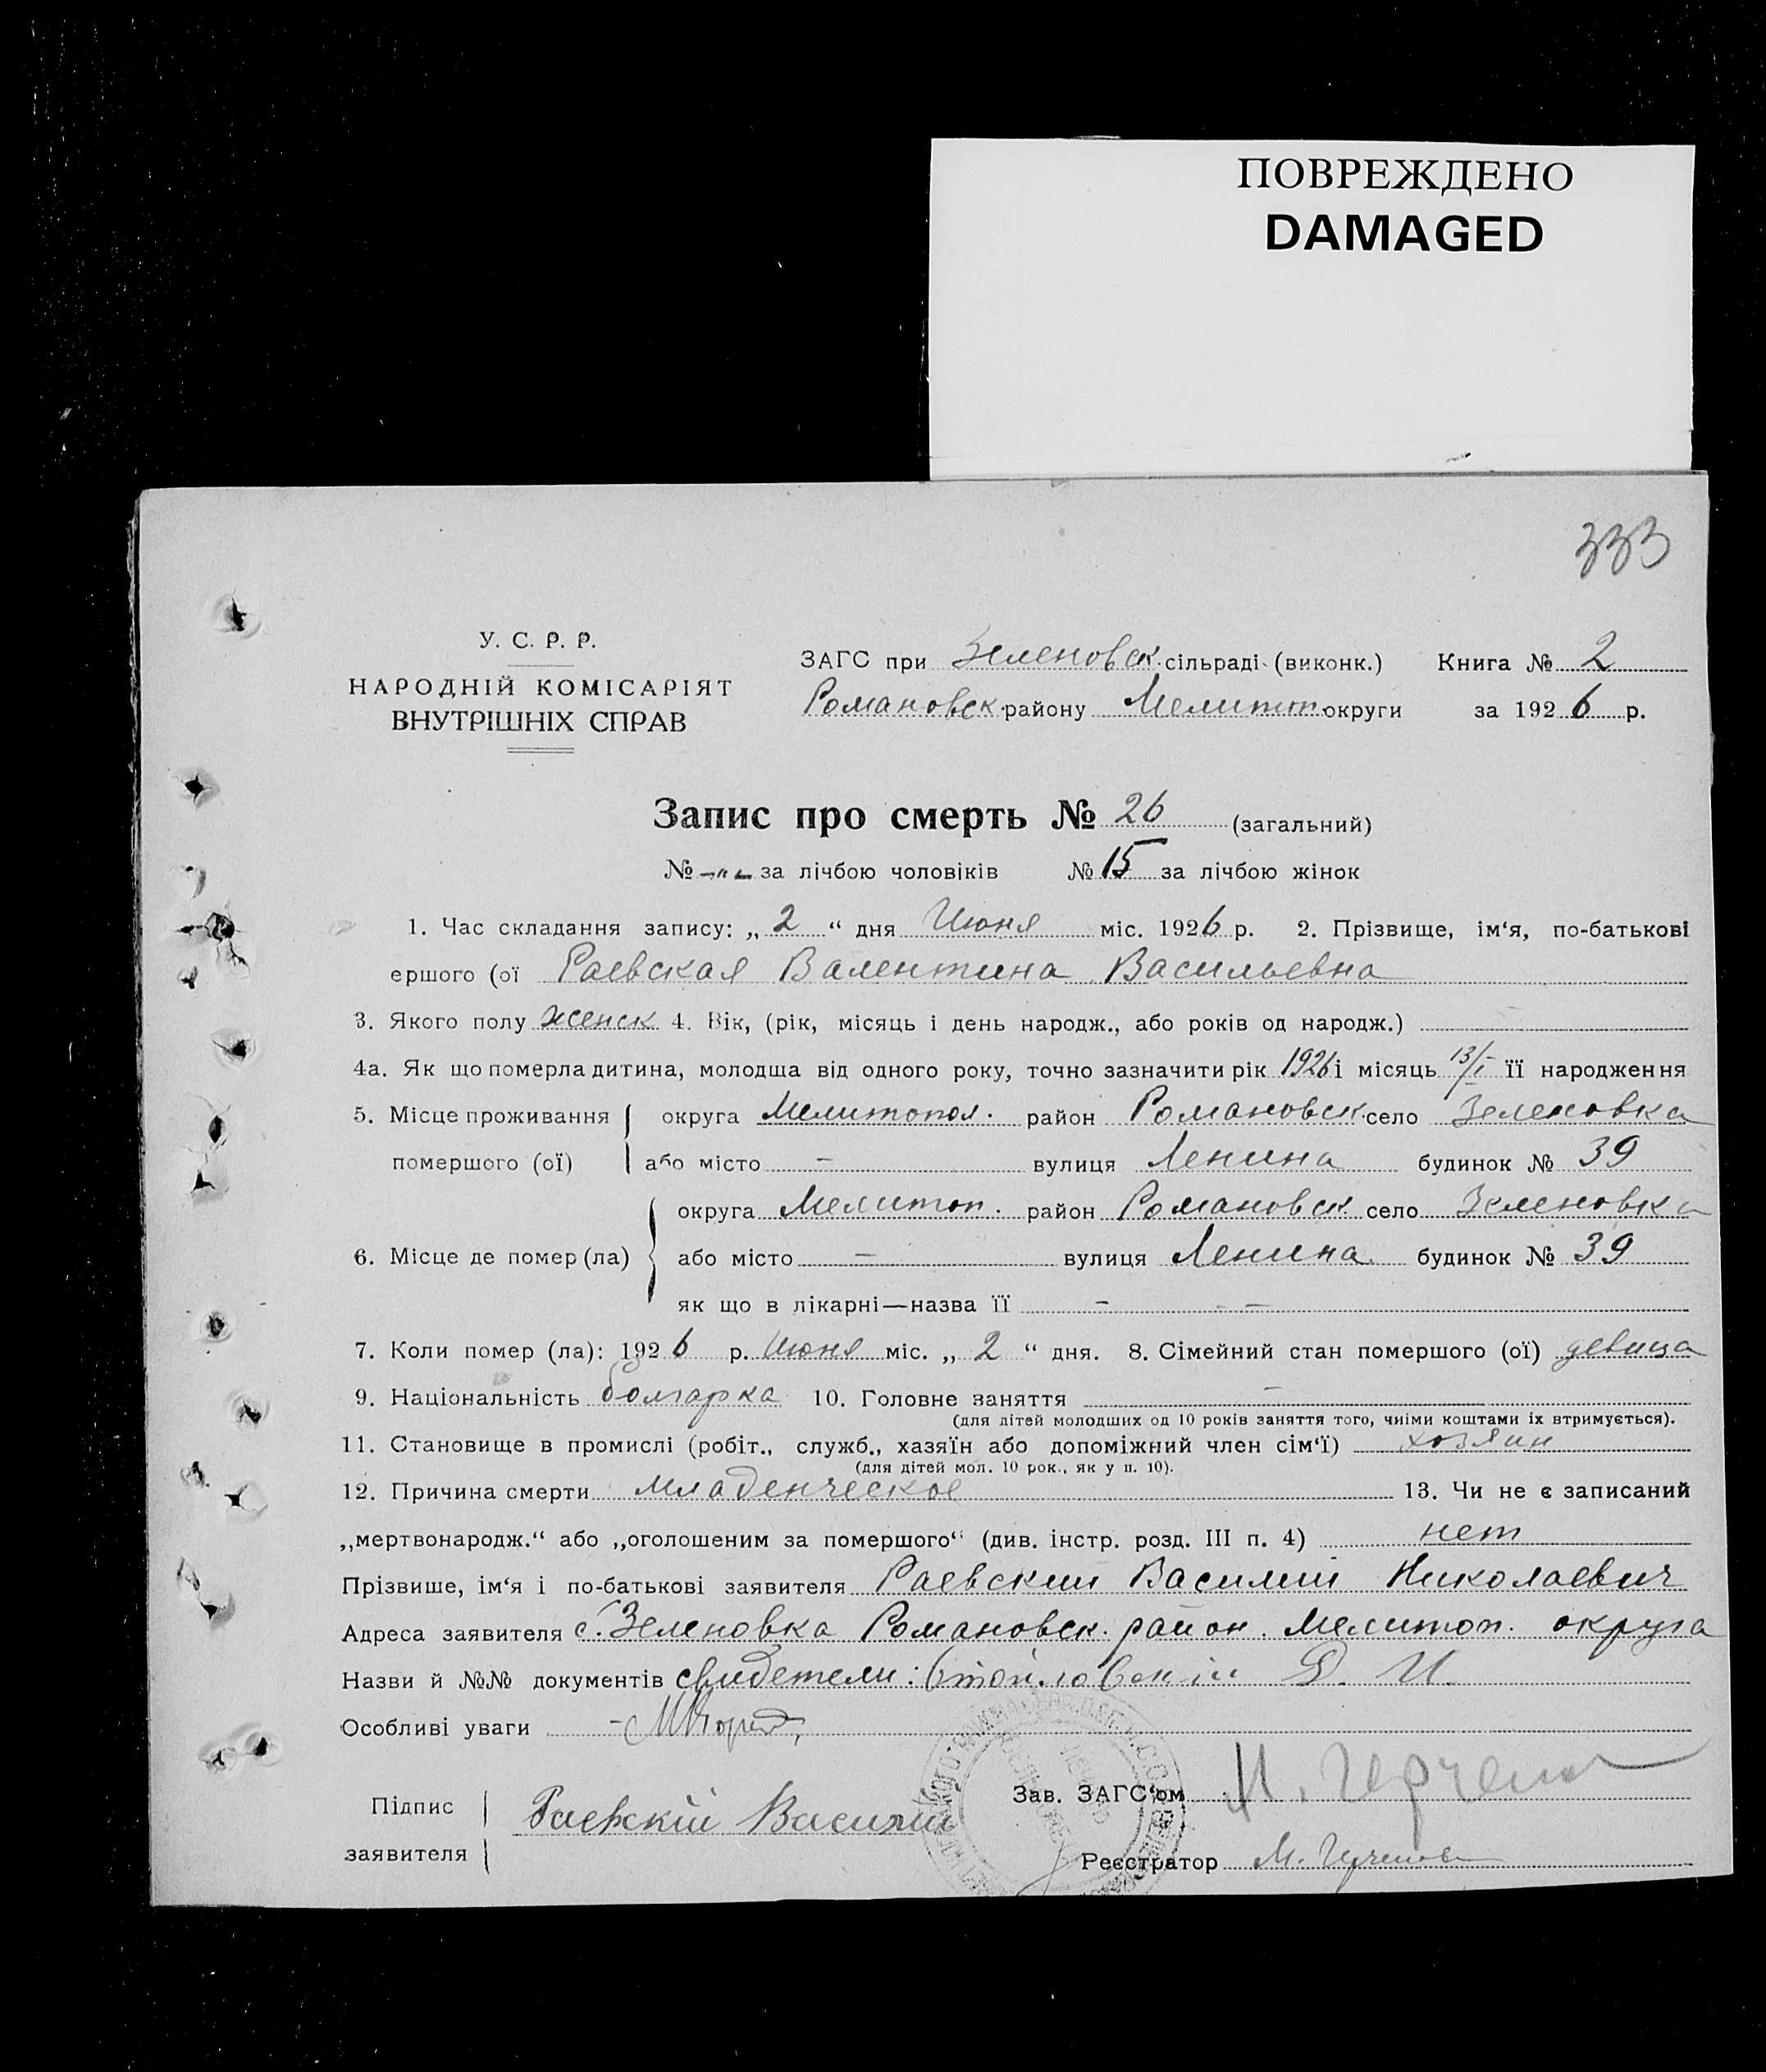 ПОВРЕЖДЕНО
DAMAGED
333
У. С. Р. Р.
НАРОДНІЙ КОМІСАРІЯТ
ВНУТРІШНІХ СПРАВ
ЗАГС при Зеленовск. сільраді (виконк.) Книга № 2
Романовск. району Мелитоп. округи за 1926 р.
Запис про смерть № 26 (загальний)
№ -"- за лічбою чоловіків № 15 за лічбою жінок
1. Час складання запису: „ 2 “ дня Июня міс. 1926 р. 2. Прізвище, ім‘я, по-батькові
ершого (ої Раевская Валентина Васильевна
3. Якого полу женск 4. Вік, (рік, місяць і день народж., або років од народж.)
4а. Як що померла дитина, молодша від одного року, точно зазначити рік 1926 і місяць 13/I її народження
5. Місце проживання округа Мелитопол. район Романовск. село Зеленовка
помершого (ої) або місто — вулиця Ленина будинок № 39
округа Мелитоп. район Романовск. село Зеленовка
6. Місце де помер (ла) або місто — вулиця Ленина будинок № 39
як що в лікарні—назва її — —
7. Коли помер (ла): 1926 р. Июня міс. „ 2 “ дня. 8. Сімейний стан помершого (ої) девица
9. Національність болгарка 10. Головне заняття —
(для дітей молодших од 10 років заняття того, чиїми коштами їх втримується).
11. Становище в промислі (робіт., служб., хазяїн або допоміжний член сім‘ї) хозяин
(для дітей мол. 10 рок., як у п. 10).
12. Причина смерти младенческое 13. Чи не є записаний
„мертвонародж.“ або „оголошеним за помершого“ (див. інстр. розд. III п. 4) нет
Прізвише, ім‘я і по-батькові заявителя Раевский Василий Николаевич
Адреса заявителя с. Зеленовка Романовск. район. Мелитоп. округа
Назви й №№ документів свидетели: Д. И.
Особливі уваги —
Підпис Раевскій Василий Зав. ЗАГС‘ом
заявителя Реєстратор М.